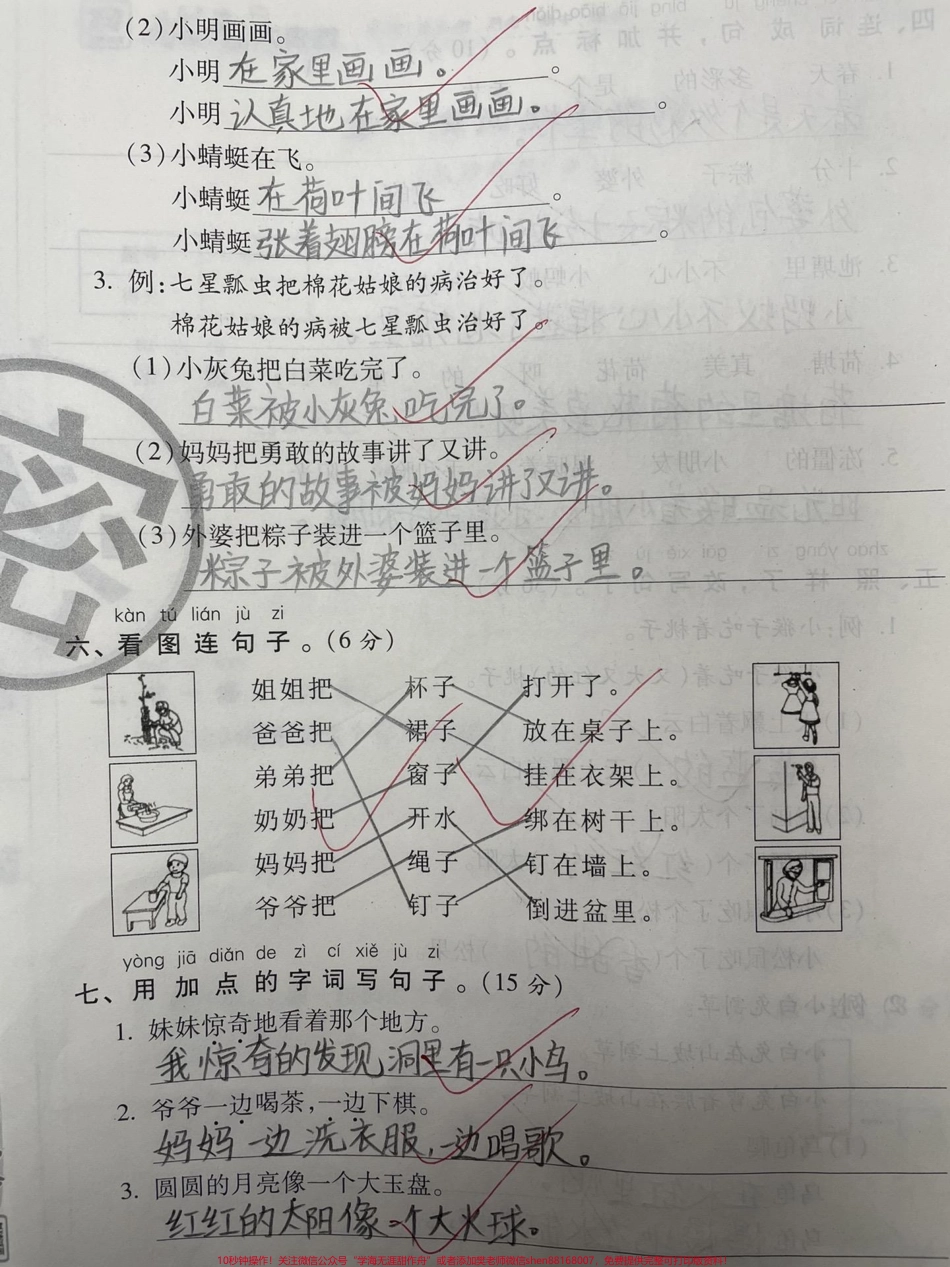 (2)小明画画。
小明在家里画画。。
小明认真地在家里画画。。
(3)小蜻蜓在飞。
小蜻蜓在荷叶间飞。
小蜻蜓张着翅膀在荷叶间飞。
3. 例:七星瓢虫把棉花姑娘的病治好了。
棉花姑娘的病被七星瓢虫治好了。
(1)小灰兔把白菜吃完了。
白菜被小灰兔吃完了。
(2)妈妈把勇敢的故事讲了又讲。
勇敢的故事被妈妈讲了又讲。
(3)外婆把粽子装进一个篮子里。
粽子被外婆装进一个篮子里。
密
kàn tú lián jù zi
六、看图连句子。(6分)
姐姐把 杯子 打开了。
爸爸把 裙子 放在桌子上。
弟弟把 窗子 挂在衣架上。
奶奶把 开水 绑在树干上。
妈妈把 绳子 钉在墙上。
爷爷把 钉子 倒进盆里。
yòng jiā diǎn de zì cí xiě jù zi
七、用加点的字词写句子。(15分)
1. 妹妹惊奇地看着那个地方。
我惊奇的发现,洞里有一只小鸟。
2. 爷爷一边喝茶,一边下棋。
妈妈一边洗衣服,一边唱歌。
3. 圆圆的月亮像一个大玉盘。
红红的太阳像一个大火球。
10秒钟操作!关注微信公众号“学海无涯甜作舟”或者添加樊老师微信shen88168007,免费提供完整可打印版资料!